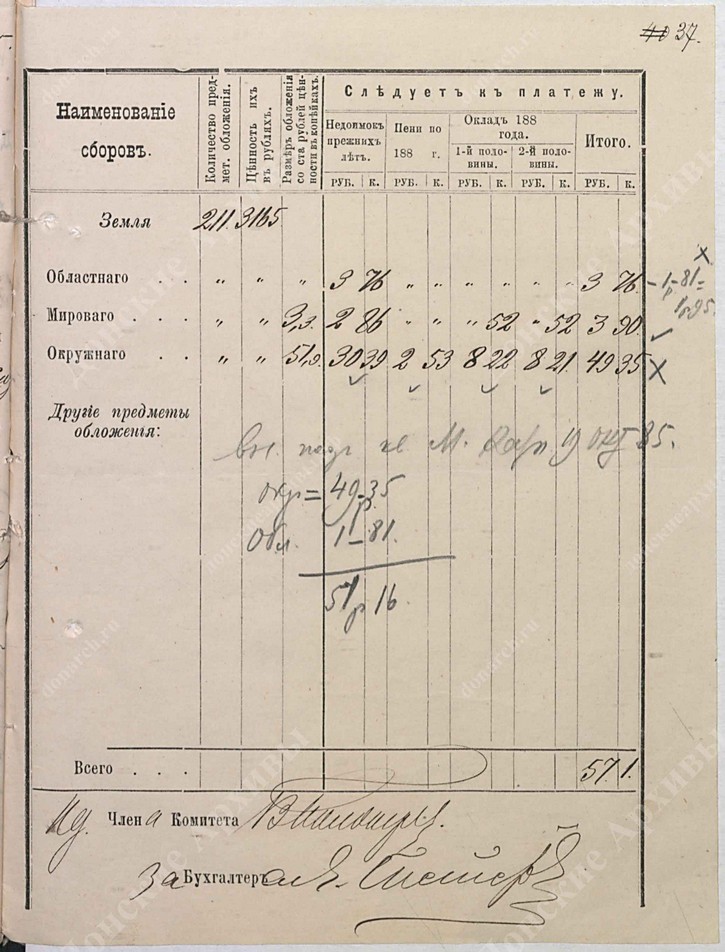 40 37.
Наименованіе сборовъ.
Количество предмет. обложенія.
Цѣнность ихъ въ рубляхъ.
Размѣръ обложенія со ста рублей цѣнности въ копѣйкахъ.
Слѣдуетъ къ платежу.
Недоимокъ прежнихъ лѣтъ.
Пени по 188 г.
Окладъ 188 года.
1-й половины.
2-й половины.
Итого.
РУБ. К. РУБ. К. РУБ. К. РУБ. К. РУБ. К.
Земля 211. 3165
Областнаго . . „ „ „ 3 76 „ „ „ „ „ „ 3 76. – 1 р – 81 =
1 р 95.
Мироваго . . . „ „ 3,3. 2 86 „ „ „ 52 „ 52 3 90.
Окружнаго . . „ „ 51,9. 30 39 2 53 8 22 8 21 49 35 х
Другіе предметы
обложенія:
М. 19 окт 85.
окр = 49 р 35
Обл. 1 – 81.
51 р 16.
Всего . . . 57 1.
Ид. Члена Комитета
За Бухгалтера